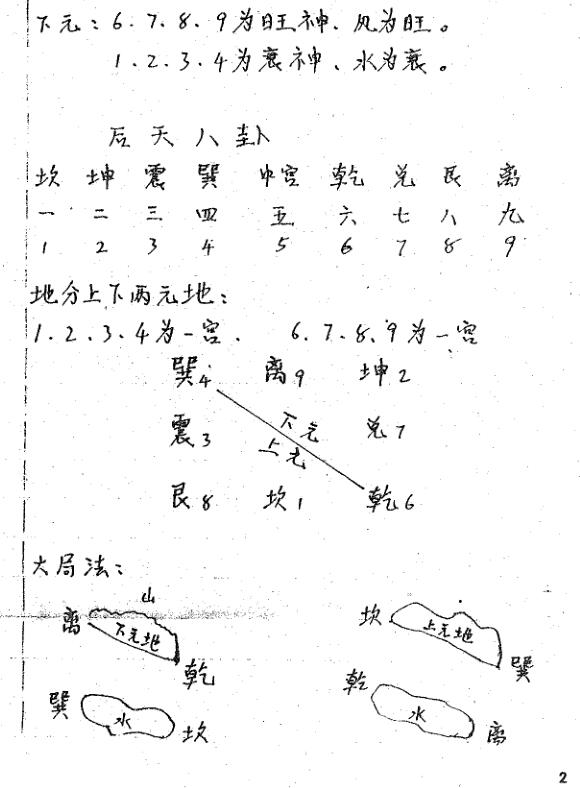 下元：6.7.8.9为旺神、风为旺。
1.2.3.4为衰神、水为衰。
后天八卦
坎 坤 震 巽 中宫 乾 兑 艮 离
一 二 三 四 五 六 七 八 九
1 2 3 4 5 6 7 8 9
地分上下两元地：
1.2.3.4为一宫. 6.7.8.9为一宫
巽4 离9 坤2
震3 下元 兑7
上元
艮8 坎1 乾6
大局法：
山
离 下元地 乾
坎 上元地 巽
巽 水 坎
乾 水 离
2